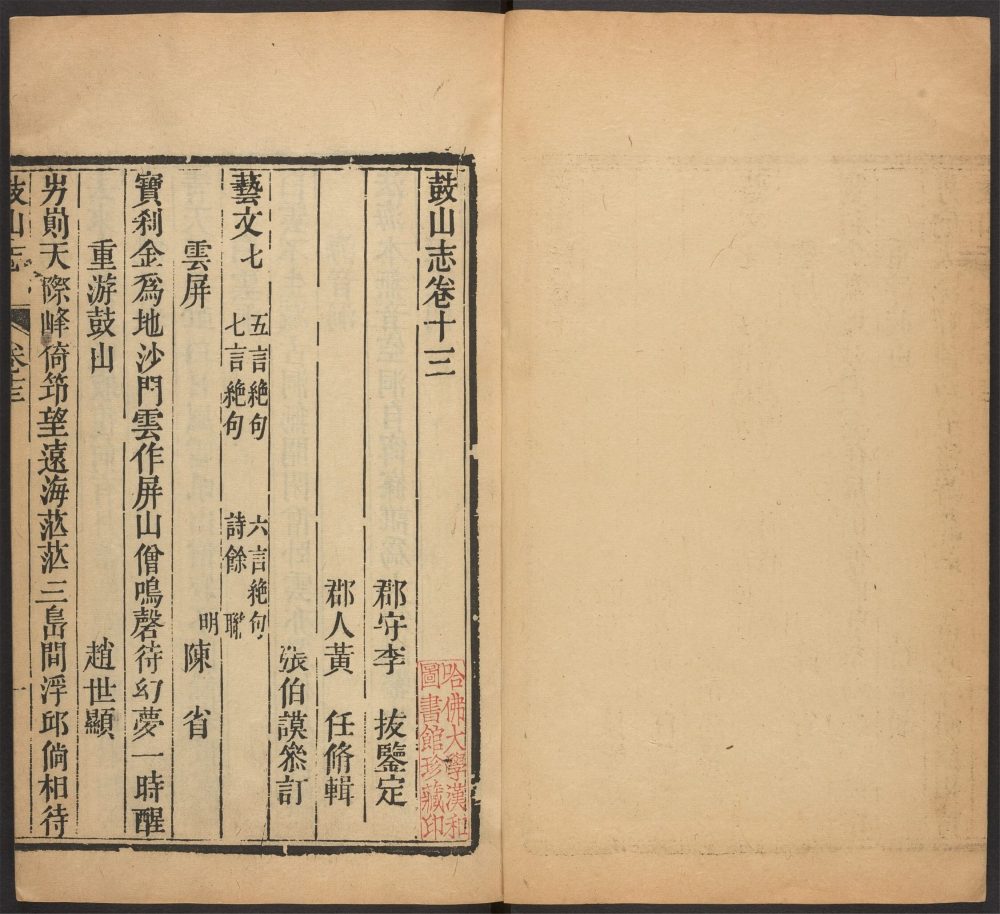 鼓山志卷十三
郡守李 拔鑒定
郡人黃 任脩輯
張伯謨叅訂
藝文七 五言絶句 六言絶句
七言絶句 詩餘 聮
雲屏 明陳 省
寶刹金爲地沙門雲作屏山僧鳴磬待幻夢一時醒
重游鼓山 趙世顯
屴崱天際峰倚筇望遠海茫茫三島間浮邱倘相待
鼓山志 卷十三 一
哈佛大學漢和
圖書館珍藏印